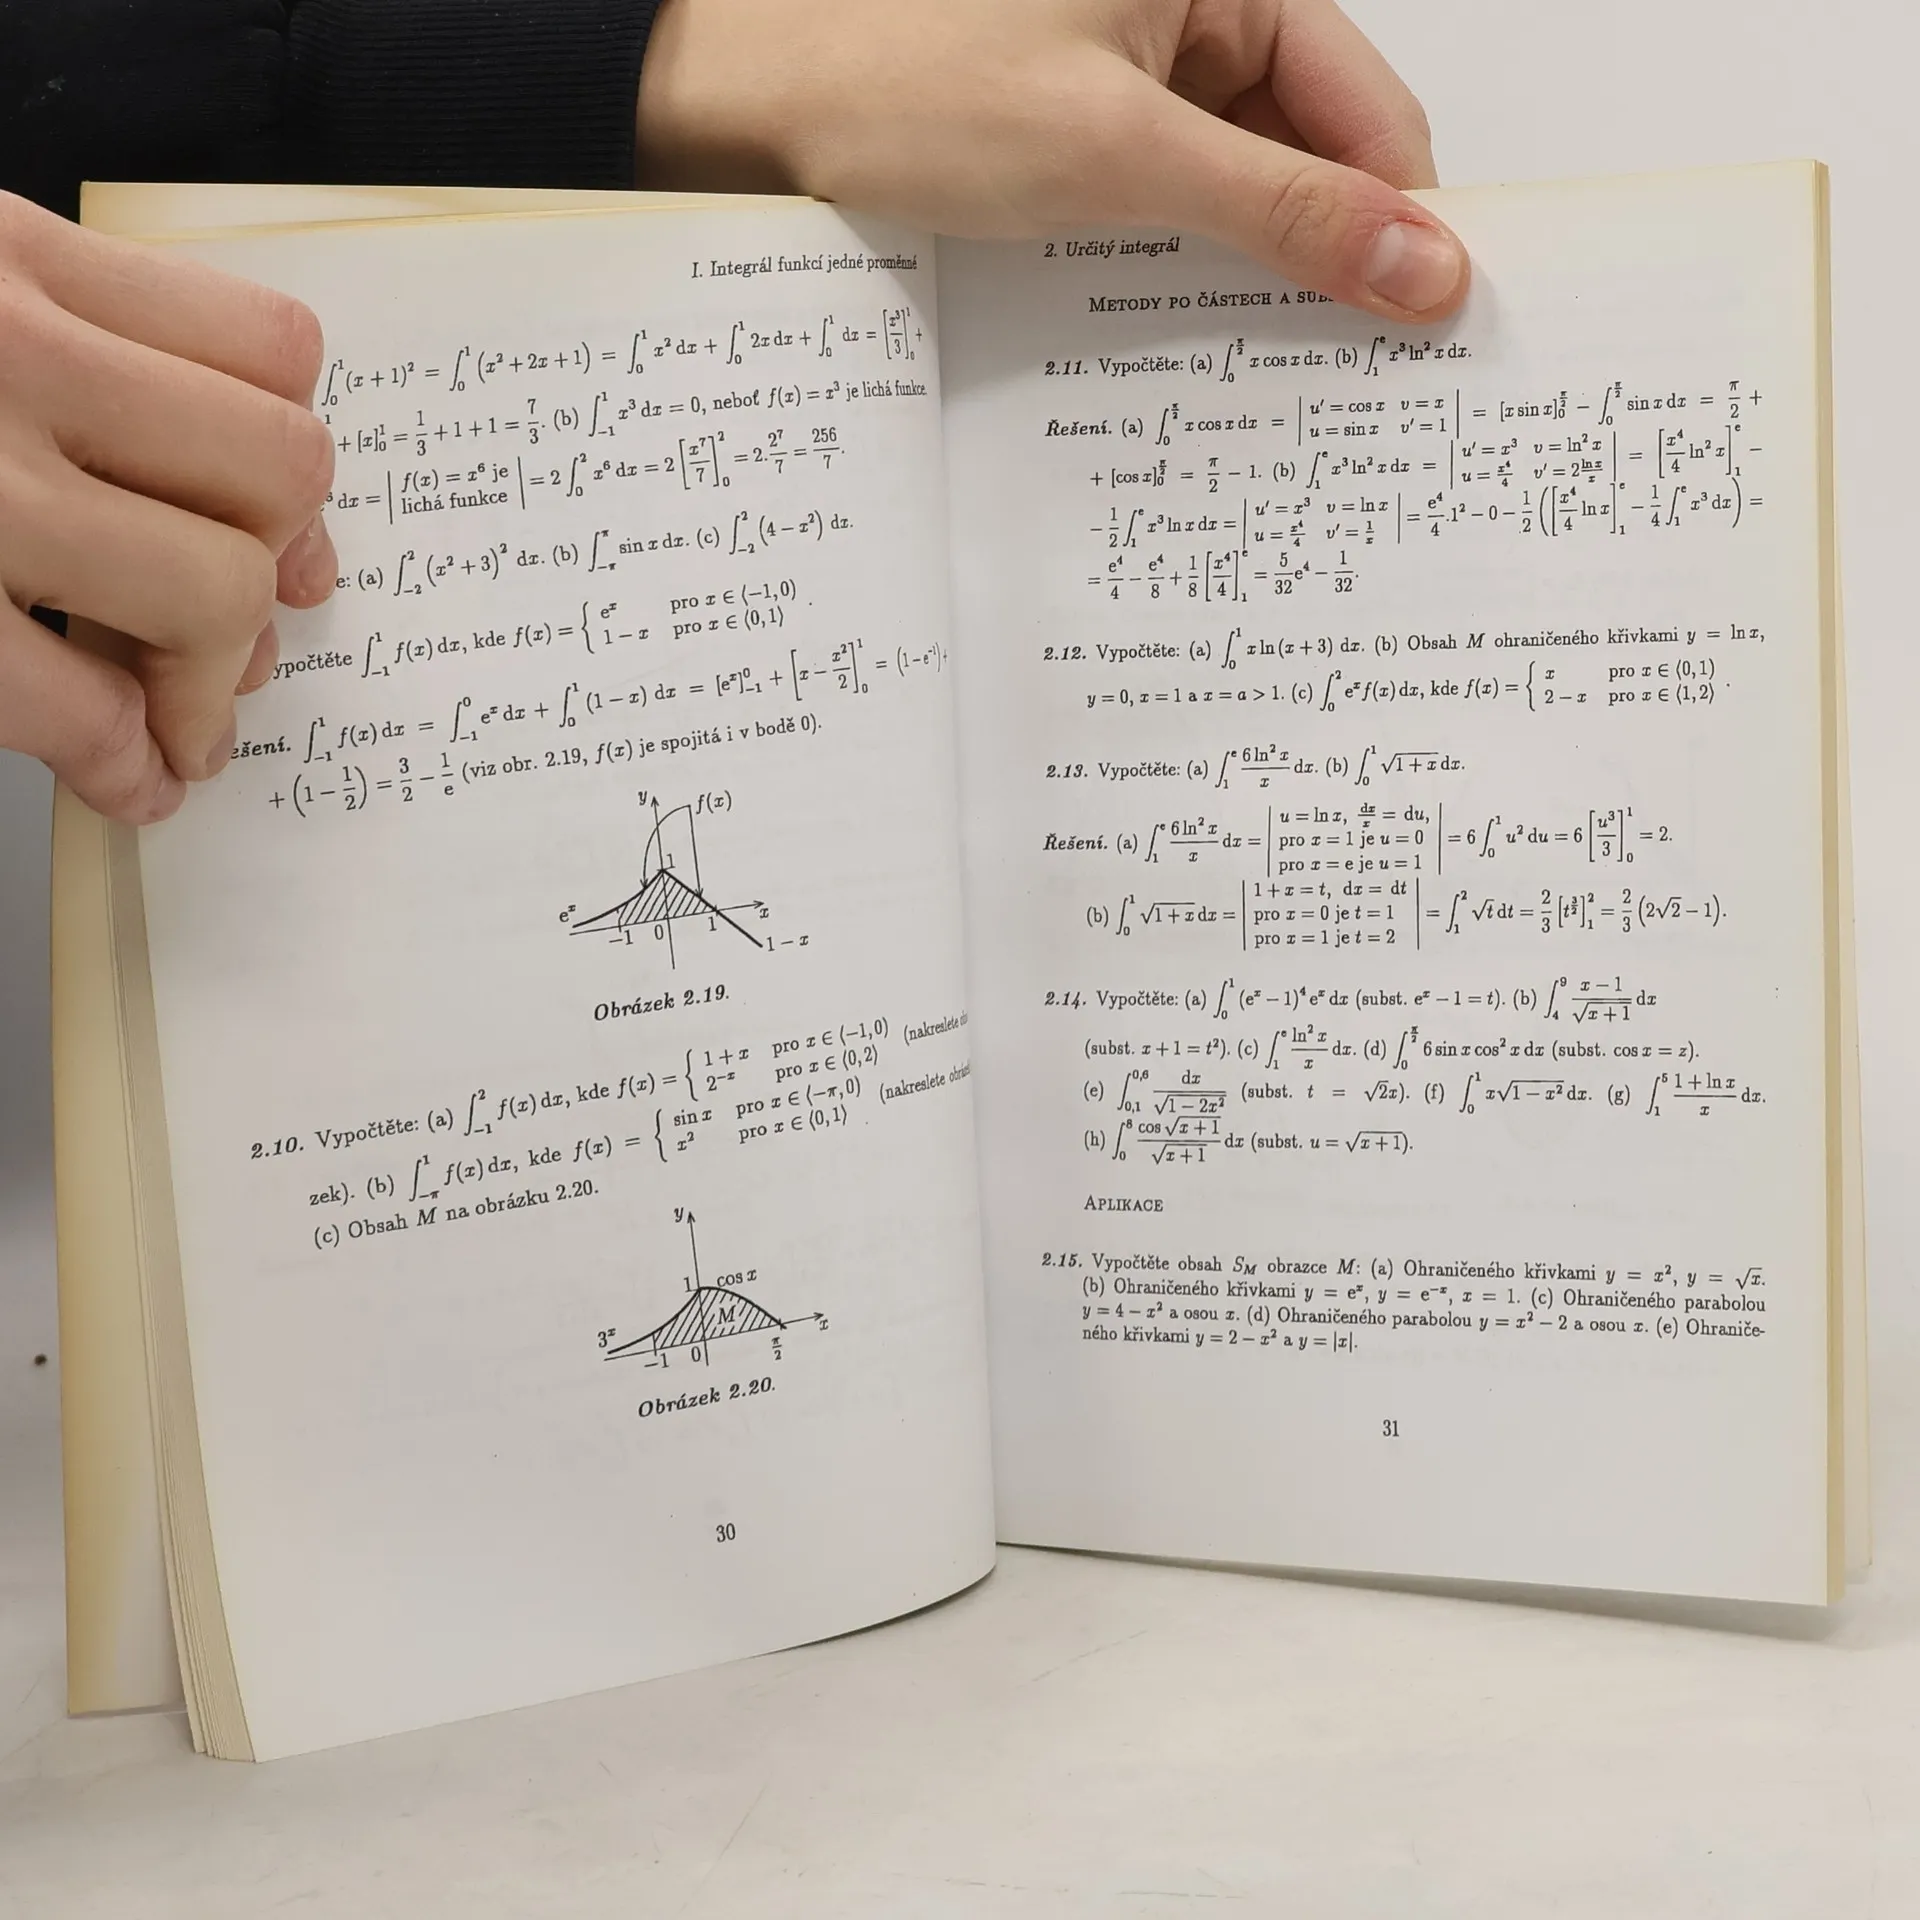 I. Integrál funkcí jedné proměnné
∫₀¹ (x + 1)² = ∫₀¹ (x² + 2x + 1) = ∫₀¹ x² dx + ∫₀¹ 2x dx + ∫₀¹ dx = [x³/3]₀¹ +
+ [x]₀¹ = 1/3 + 1 + 1 = 7/3. (b) ∫₋₁¹ x³ dx = 0, neboť f(x) = x³ je lichá funkce.
dx = | f(x) = x⁶ je lichá funkce | = 2 ∫₀² x⁶ dx = 2 [x⁷/7]₀² = 2.2⁷/7 = 256/7.
e: (a) ∫₋₂² (x² + 3)² dx. (b) ∫₋π^π sin x dx. (c) ∫₋₂² (4 − x²) dx.
ypočtěte ∫₋₁¹ f(x) dx, kde f(x) = { eˣ pro x ∈ ⟨−1,0) ; 1 − x pro x ∈ ⟨0,1⟩ .
ešení. ∫₋₁¹ f(x) dx = ∫₋₁⁰ eˣ dx + ∫₀¹ (1 − x) dx = [eˣ]₋₁⁰ + [x − x²/2]₀¹ = (1 − e⁻¹) +
+ (1 − 1/2) = 3/2 − 1/e (viz obr. 2.19, f(x) je spojitá i v bodě 0).
y f(x)
1
eˣ −1 0 1 x
1 − x
Obrázek 2.19.
2.10. Vypočtěte: (a) ∫₋₁² f(x) dx, kde f(x) = { 1 + x pro x ∈ ⟨−1,0) ; 2⁻ˣ pro x ∈ ⟨0,2⟩ (nakreslete
zek). (b) ∫₋π¹ f(x) dx, kde f(x) = { sin x pro x ∈ ⟨−π,0) ; x² pro x ∈ ⟨0,1⟩ (nakreslete
(c) Obsah M na obrázku 2.20.
y
1 cos x
M
3ˣ −1 0 π/2 x
Obrázek 2.20.
30
2. Určitý integrál
METODY PO ČÁSTECH A
2.11. Vypočtěte: (a) ∫₀^(π/2) x cos x dx. (b) ∫₁ᵉ x³ ln² x dx.
Řešení. (a) ∫₀^(π/2) x cos x dx = | u′ = cos x v = x ; u = sin x v′ = 1 | = [x sin x]₀^(π/2) − ∫₀^(π/2) sin x dx = π/2 +
+ [cos x]₀^(π/2) = π/2 − 1. (b) ∫₁ᵉ x³ ln² x dx = | u′ = x³ v = ln² x ; u = x⁴/4 v′ = 2 ln x/x | = [x⁴/4 ln² x]₁ᵉ −
− 1/2 ∫₁ᵉ x³ ln x dx = | u′ = x³ v = ln x ; u = x⁴/4 v′ = 1/x | = e⁴/4 .1² − 0 − 1/2 ([x⁴/4 ln x]₁ᵉ − 1/4 ∫₁ᵉ x³ dx) =
= e⁴/4 − e⁴/8 + 1/8 [x⁴/4]₁ᵉ = 5/32 e⁴ − 1/32.
2.12. Vypočtěte: (a) ∫₀¹ x ln (x + 3) dx. (b) Obsah M ohraničeného křivkami y = ln x,
y = 0, x = 1 a x = a > 1. (c) ∫₀² eˣ f(x) dx, kde f(x) = { x pro x ∈ ⟨0,1) ; 2 − x pro x ∈ ⟨1,2⟩ .
2.13. Vypočtěte: (a) ∫₁ᵉ 6 ln² x/x dx. (b) ∫₀¹ √(1 + x) dx.
Řešení. (a) ∫₁ᵉ 6 ln² x/x dx = | u = ln x, dx/x = du, pro x = 1 je u = 0 pro x = e je u = 1 | = 6 ∫₀¹ u² du = 6 [u³/3]₀¹ = 2.
(b) ∫₀¹ √(1 + x) dx = | 1 + x = t, dx = dt pro x = 0 je t = 1 pro x = 1 je t = 2 | = ∫₁² √t dt = 2/3 [t^(3/2)]₁² = 2/3 (2√2 − 1).
2.14. Vypočtěte: (a) ∫₀¹ (eˣ − 1)⁴ eˣ dx (subst. eˣ − 1 = t). (b) ∫₄⁹ (x − 1)/√(x + 1) dx
(subst. x + 1 = t²). (c) ∫₁ᵉ ln² x/x dx. (d) ∫₀^(π/2) 6 sin x cos² x dx (subst. cos x = z).
(e) ∫₀,₁^0,6 dx/√(1 − 2x²) (subst. t = √2x). (f) ∫₀¹ x√(1 − x²) dx. (g) ∫₁⁵ (1 + ln x)/x dx.
(h) ∫₀⁸ cos √(x + 1)/√(x + 1) dx (subst. u = √(x + 1)).
APLIKACE
2.15. Vypočtěte obsah S_M obrazce M: (a) Ohraničeného křivkami y = x², y = √x.
(b) Ohraničeného křivkami y = eˣ, y = e⁻ˣ, x = 1. (c) Ohraničeného parabolou
y = 4 − x² a osou x. (d) Ohraničeného parabolou y = x² − 2 a osou x. (e) Ohraniče-
ného křivkami y = 2 − x² a y = |x|.
31